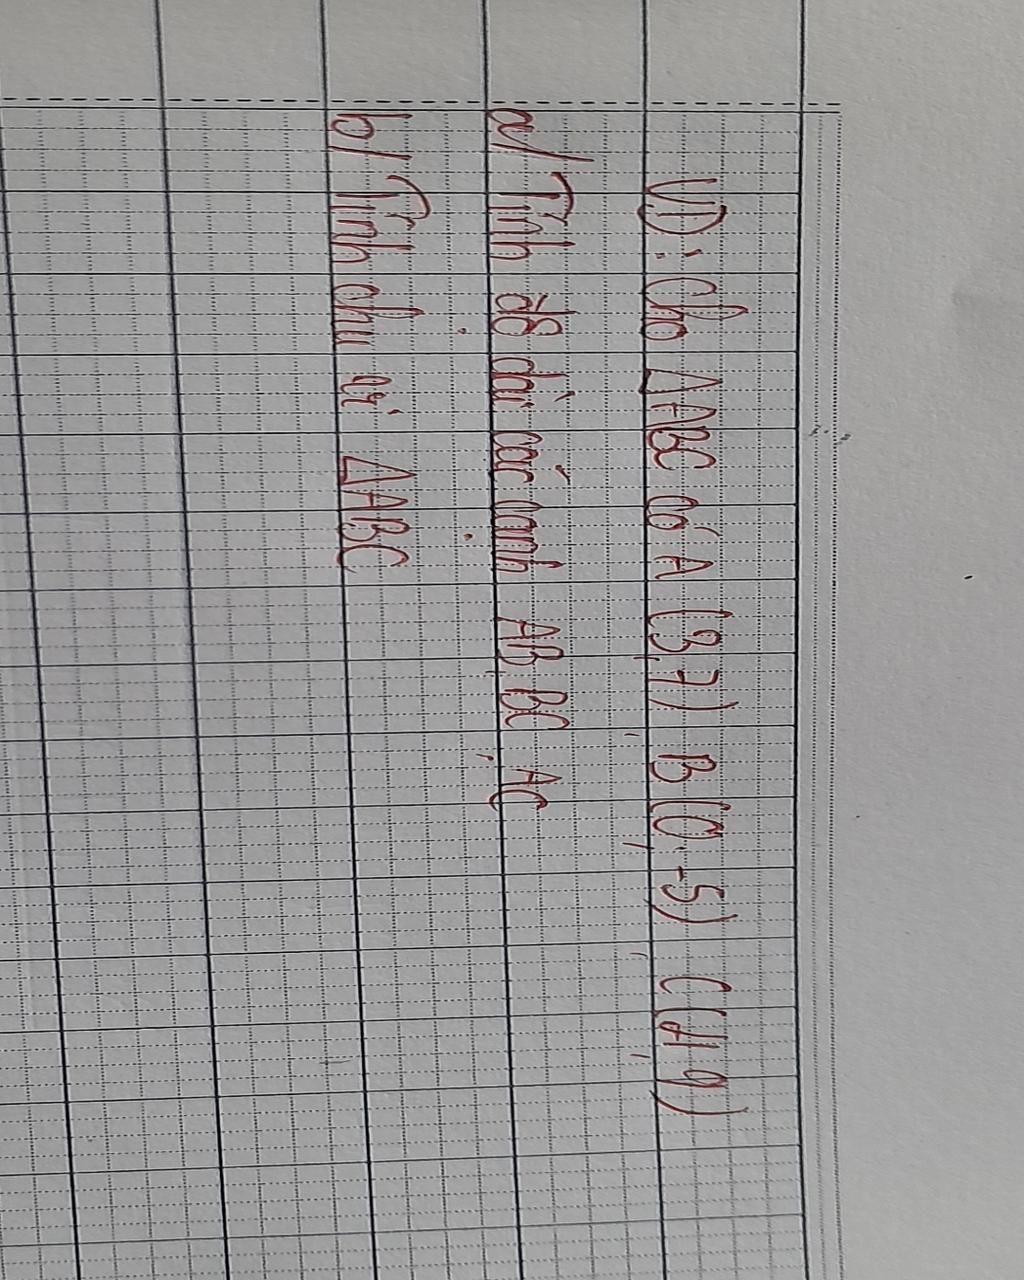 VD: Cho ΔABC có A (3,7), B(0,-5), C(-1,9)
a/ Tính độ dài các cạnh AB, BC, AC
b/ Tính chu vi ΔABC